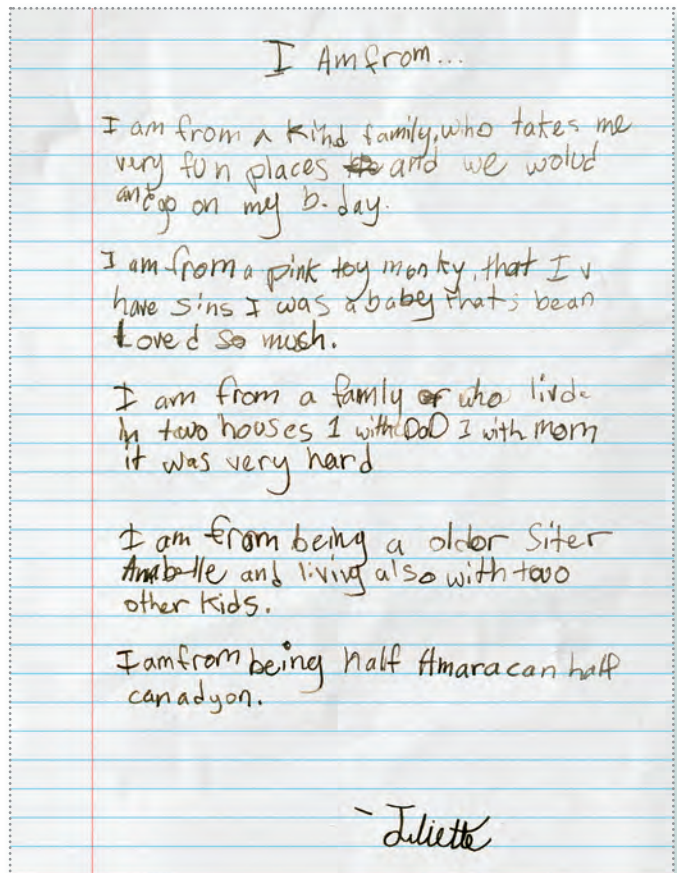 I Am from...
I am from a kind family, who takes me
very fun places and we wolud
go on my b-day.
I am from a pink toy monky, that I v
have sins I was a baby that; bean
Loved so mush.
I am from a family who livde
in tow houses 1 with DaD 1 with mom
it was very hard
I am from being a older Siter
Anabelle and living also with towo
other kids.
I am from being half Amaracan half
canadyon.
- Juliette